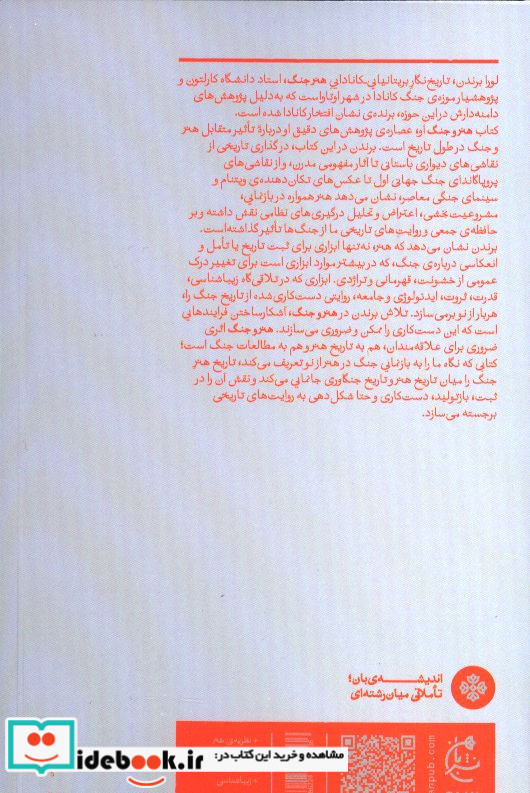 لورا برندن، تاریخ‌نگار بریتانیایی‌ـ‌کانادایی هنر جنگ، استاد دانشگاه کارلتون و
پژوهشیار موزه‌ی جنگ کانادا در شهر اوتاوا‌ست که به‌دلیل پژوهش‌های
دامنه‌دارش در این حوزه، برنده‌ی نشان افتخار کانادا شده است.
کتاب هنر و جنگ او، عصاره‌ی پژوهش‌های دقیق او درباره‌ٔ تأثیر متقابل هنر
و جنگ در طول تاریخ است. برندن در این کتاب، در گذاری تاریخی از
نقاشی‌های دیواری باستانی تا آثار مفهومی مدرن، و از نقاشی‌های
پروپاگاندای جنگ جهانی اول تا عکس‌های تکان‌دهنده‌ی ویتنام و
سینمای جنگی معاصر، نشان می‌دهد هنر همواره در بازنمایی،
مشروعیت‌بخشی، اعتراض و تحلیل درگیری‌های نظامی نقش داشته و بر
حافظه‌ی جمعی و روایت‌های تاریخی ما از جنگ‌ها تأثیر گذاشته‌است.
برندن نشان می‌دهد که هنر، نه‌تنها ابزاری برای ثبت تاریخ یا تأمل و
انعکاسی درباره‌ی جنگ، که در بیشتر موارد ابزاری است برای تغییر درک
عمومی از خشونت، قهرمانی و تراژدی. ابزاری که در تلاقی‌گاه زیباشناسی،
قدرت، ثروت، ایدئولوژی و جامعه، روایتی دست‌کاری‌شده از تاریخ جنگ را،
هربار از نو برمی‌سازد. تلاش برندن در هنر و جنگ، آشکار ساختن فرایندهایی
است که این دست‌کاری را ممکن و ضروری می‌سازند. هنر و جنگ اثری
ضروری برای علاقه‌مندان، هم به تاریخ هنر و هم به مطالعات جنگ است؛
کتابی که نگاه ما را به بازنمایی جنگ در هنر از نو تعریف می‌کند، تاریخ هنرِ
جنگ را میان تاریخ هنر و تاریخ جنگاوری جانمایی می‌کند و نقش آن را در
ثبت، بازتولید، دست‌کاری و حتا شکل‌دهی به روایت‌های تاریخی
برجسته می‌سازد.
اندیشه‌ی بان؛
تأملاتی میان‌رشته‌ای
+ نظریه‌ی هنر
+ زیباشناسی
npub.com
مشاهده و خرید این کتاب در:
idebook.ir